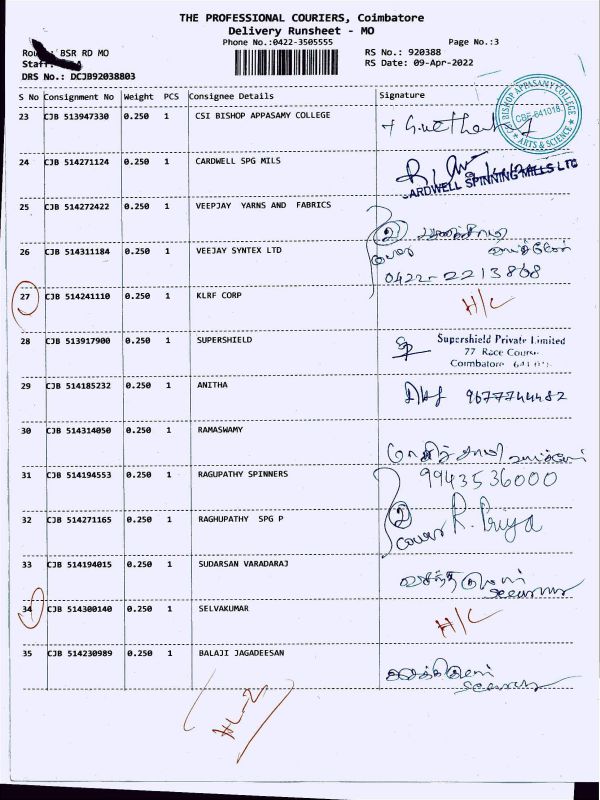 THE PROFESSIONAL COURIERS, Coimbatore
Delivery Runsheet - MO
Phone No.:0422-3505555
Page No.:3
BSR RD MO
RS No.: 920388
RS Date: 09-Apr-2022
DRS No.: DCJB92038803
S No Consignment No Weight PCS Consignee Details Signature
23 CJB 513947330 0.250 1 CSI BISHOP APPASAMY COLLEGE
CSI BISHOP APPASAMY COLLEGE
CBE-641018
ARTS & SCIENCE
24 CJB 514271124 0.250 1 CARDWELL SPG MILS
ARDWELL SPINNING MILLS LTD
25 CJB 514272422 0.250 1 VEEPJAY YARNS AND FABRICS
2
26 CJB 514311184 0.250 1 VEEJAY SYNTEX LTD
0422-2213868
27 CJB 514241110 0.250 1 KLRF CORP H/C
28 CJB 513917900 0.250 1 SUPERSHIELD
Supershield Private Limited
77 Race Course
Coimbatore
29 CJB 514185232 0.250 1 ANITHA 9677744482
30 CJB 514314050 0.250 1 RAMASWAMY
31 CJB 514194553 0.250 1 RAGUPATHY SPINNERS 9943536000
32 CJB 514271165 0.250 1 RAGHUPATHY SPG P
2 cover R. Priya
33 CJB 514194015 0.250 1 SUDARSAN VARADARAJ
34 CJB 514300140 0.250 1 SELVAKUMAR H/C
35 CJB 514230989 0.250 1 BALAJI JAGADEESAN